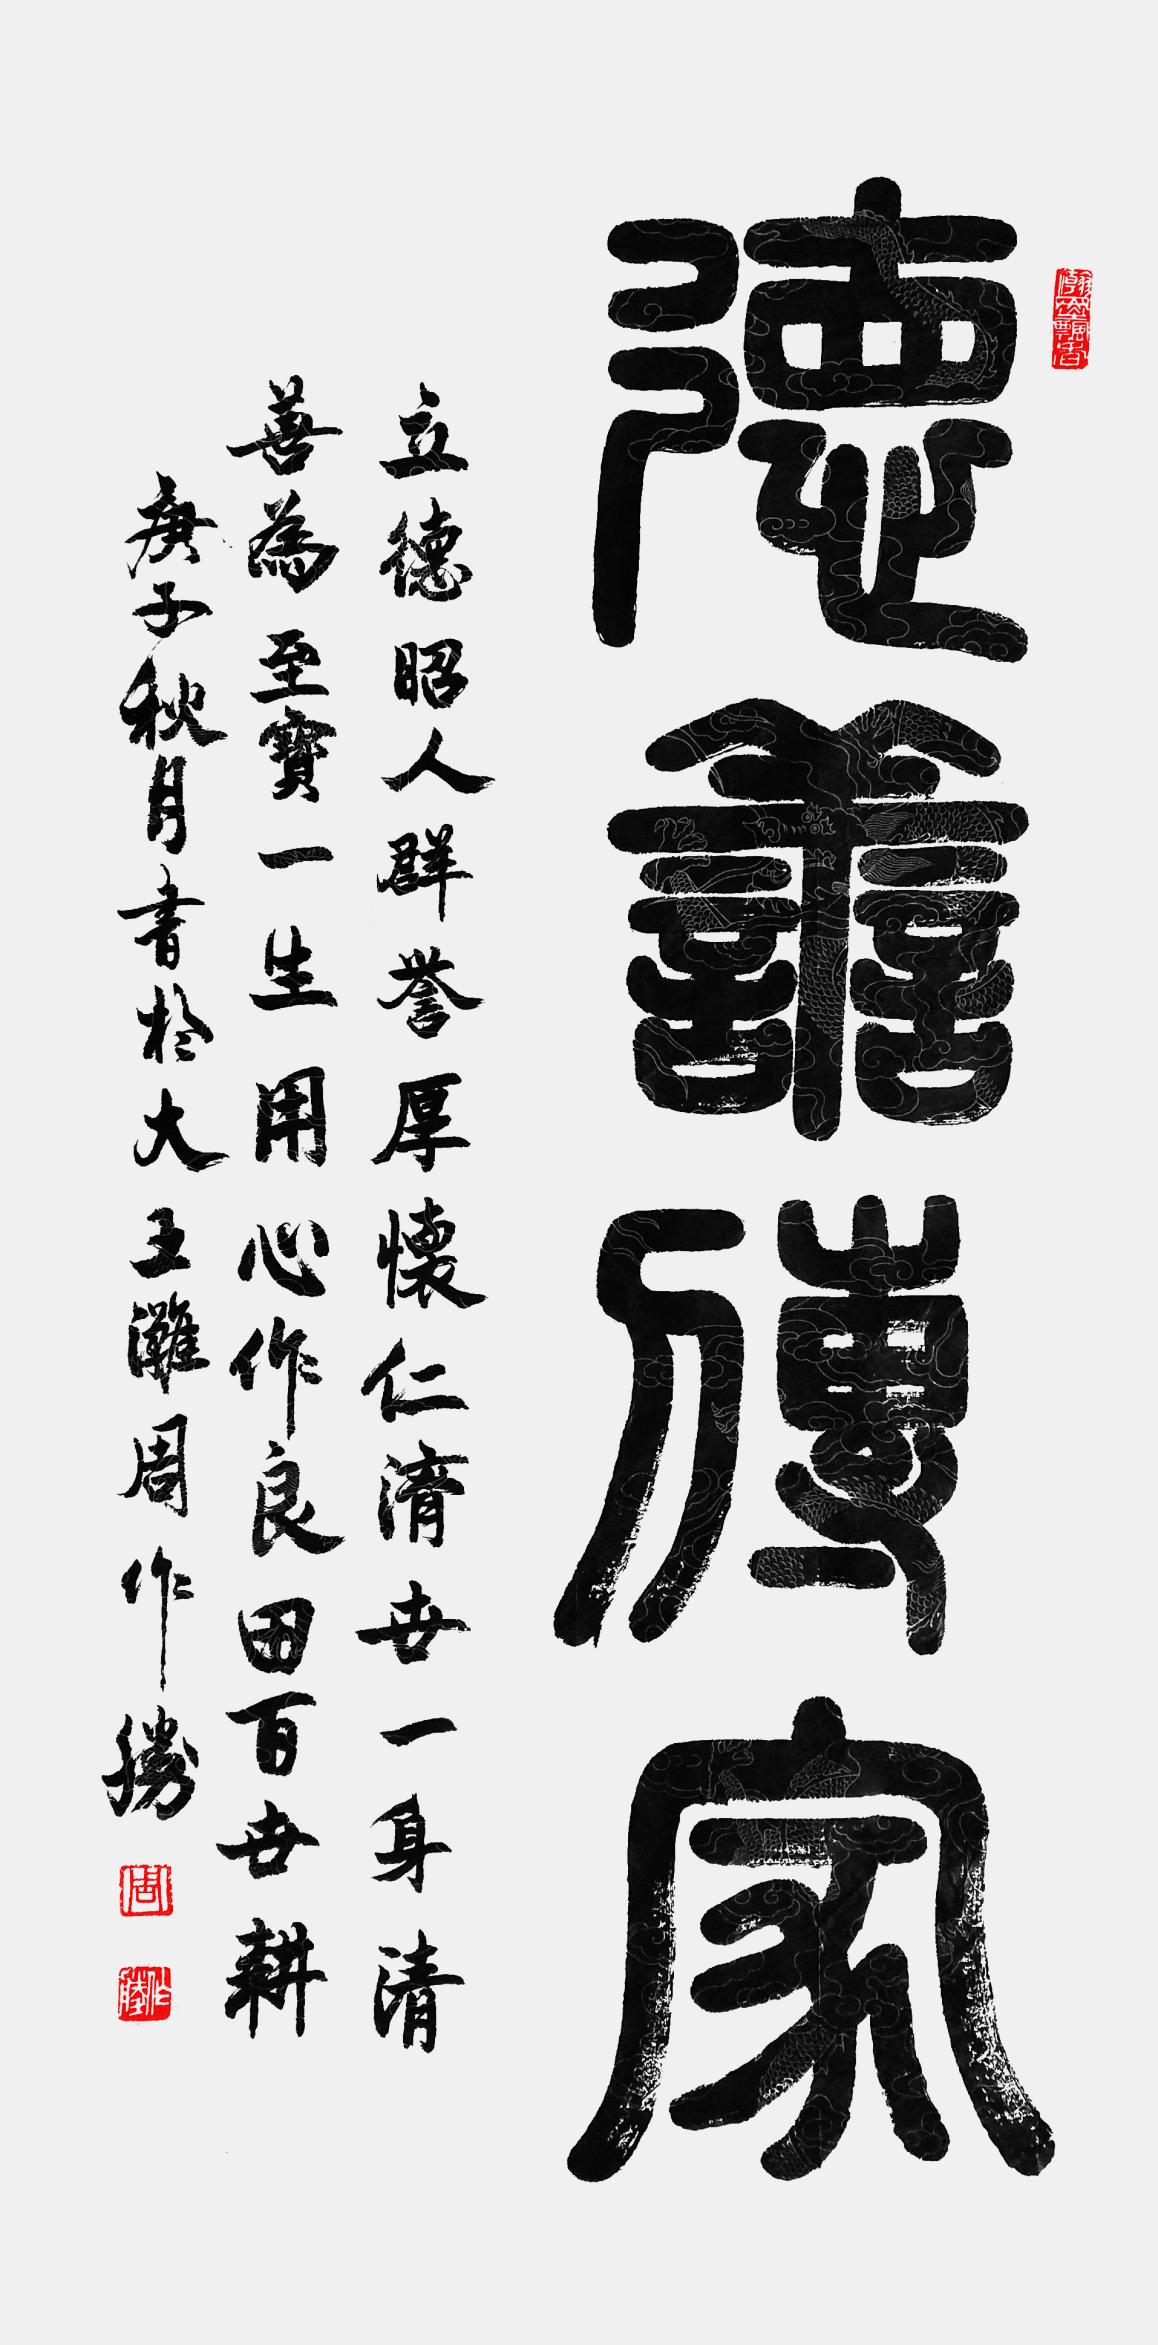 德善傳家
立德昭人群誉厚懷仁濟世一身清
善為至寶一生用心作良田百世耕
庚子秋月書於大王灘周作勝
翰墨飄香
周
作勝